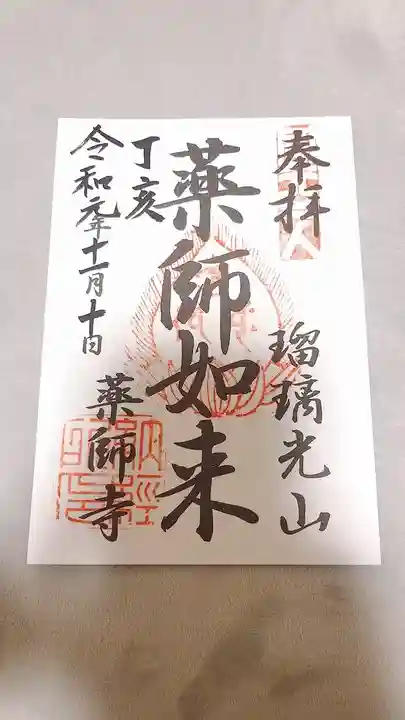 奉拝
瑠璃光山
薬師如来
丁亥
令和元年十一月十日
薬師寺